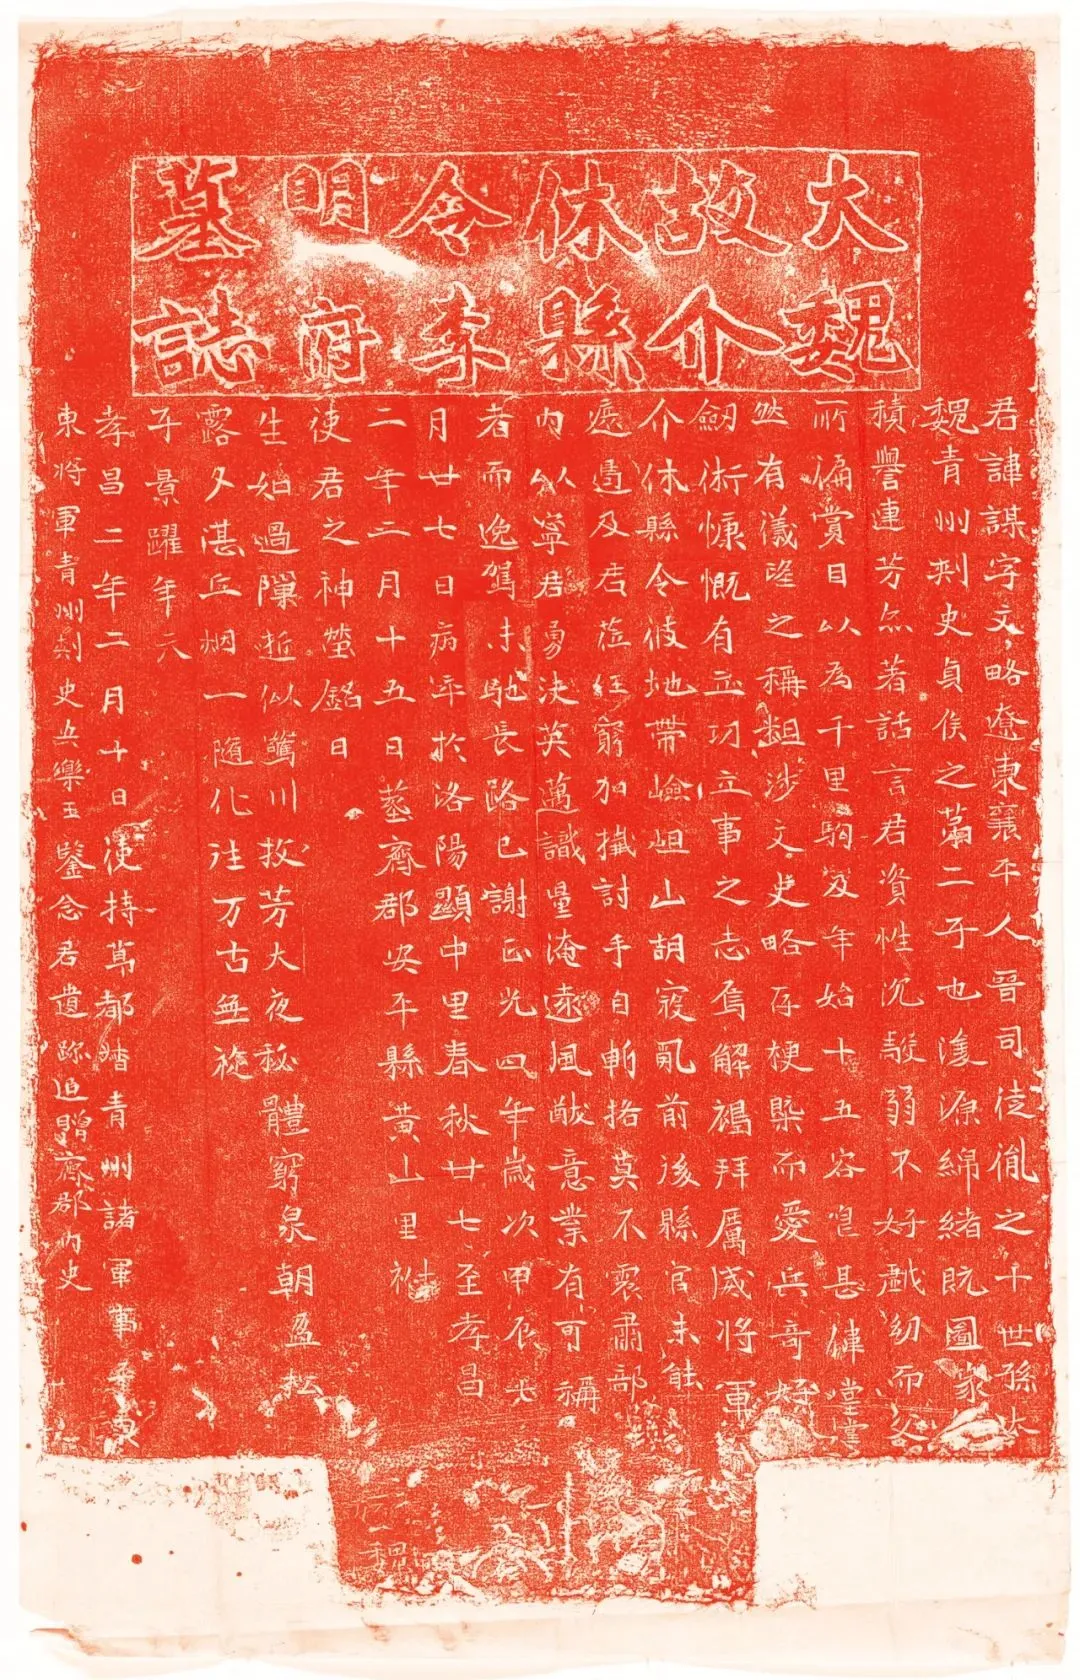 大魏
故介
休縣
令李
明府
墓誌
君諱謀字文略遼東襄平人晉司徒胤之十世孫太
魏青州刺史貞侯之第二子也濬源綿緒既圖家
積譽連芳亦著話言君資性沉駿弱不好戲幼而交
所徧賞目以為千里駒及年始十五容㒵甚偉堂堂
然有儀望之稱粗涉文史略存梗槩而愛兵奇好
劔術慷慨有立功立事之志焉解褐拜厲威將軍
介休縣令彼地帶嶮岨山胡寇亂前後縣官未能
遮遏及君莅任窮加擒討手自斬挌莫不震肅部
內以寧君勇決英邁識量淹遠風猷意業有可稱
者而逸駕未馳長路已謝正光四年歲次甲辰
月廿七日病卒於洛陽顯中里春秋廿七至孝昌
二年二月十五日葬齊郡安平縣黃山里祔
使君之神塋銘曰
生如過隙逝似驚川投芳大夜秘體窮泉朝盈松
露夕湛丘烟一隨化往万古無旋
子景躍年六
孝昌二年二月十日使持莭都督青州諸軍事
東將軍青州刺史安樂王鑒念君遺跡追贈齊郡內史